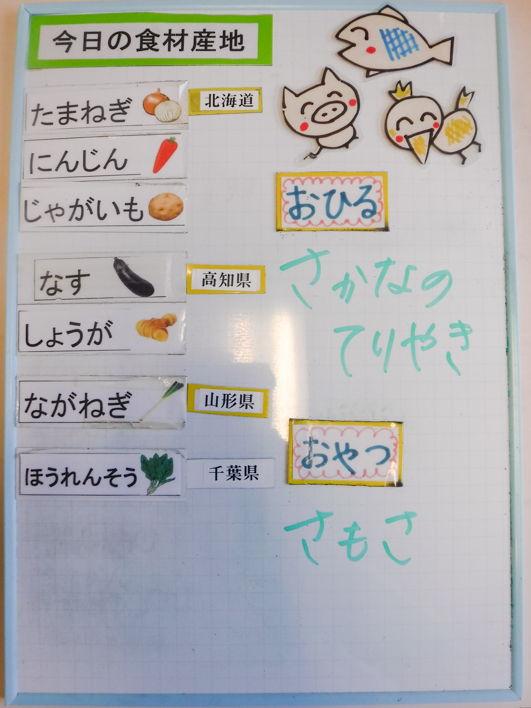 今日の食材産地
たまねぎ 北海道
にんじん
じゃがいも
なす 高知県
しょうが
ながねぎ 山形県
ほうれんそう 千葉県
おひる
さかなの
てりやき
おやつ
さもさ